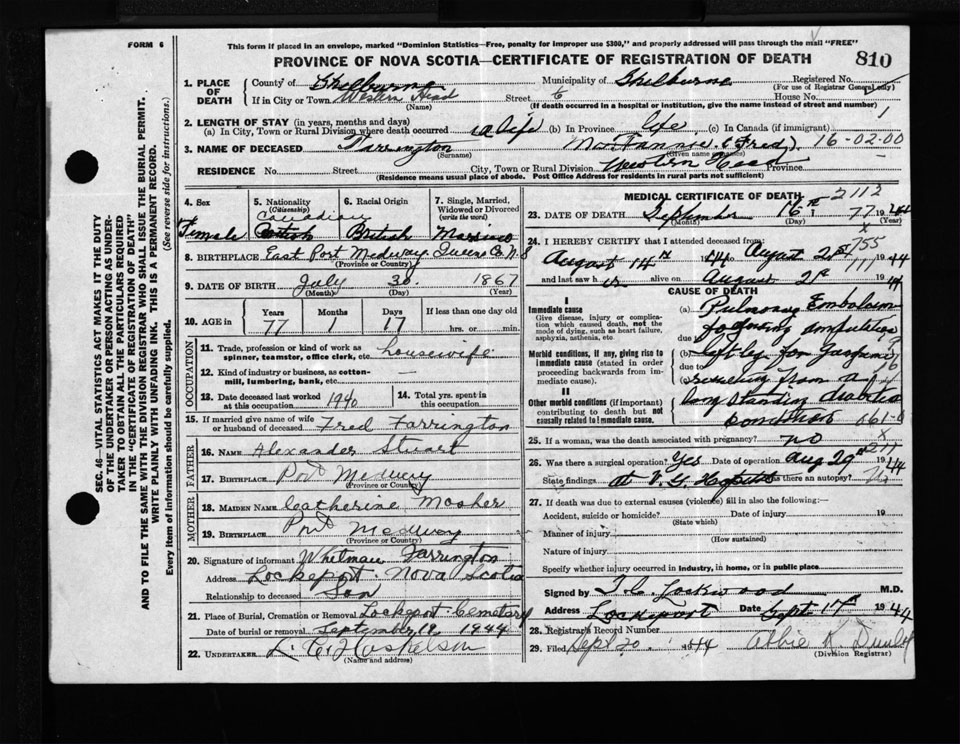 FORM 6
This form if placed in an envelope, marked "Dominion Statistics—Free, penalty for improper use $300," and properly addressed will pass through the mail "FREE"
PROVINCE OF NOVA SCOTIA—CERTIFICATE OF REGISTRATION OF DEATH
810
SEC. 46—VITAL STATISTICS ACT MAKES IT THE DUTY
OF THE UNDERTAKER OR PERSON ACTING AS UNDER-
TAKER TO OBTAIN ALL THE PARTICULARS REQUIRED
IN THE "CERTIFICATE OF REGISTRATION OF DEATH"
AND TO FILE THE SAME WITH THE DIVISION REGISTRAR WHO SHALL ISSUE THE BURIAL PERMIT.
WRITE PLAINLY WITH UNFADING INK. THIS IS A PERMANENT RECORD.
Every item of Information should be carefully supplied. (See reverse side for instructions).
1. PLACE OF DEATH County of Shelburne Municipality of Shelburne Registered No.
(For use of Registrar General only)
If in City or Town Western Head Street House No.
(Name) (If death occurred in a hospital or institution, give the name instead of street and number)
2. LENGTH OF STAY (in years, months and days) 1
(a) In City, Town or Rural Division where death occurred a life (b) In Province life (c) In Canada (if immigrant)
3. NAME OF DECEASED Farrington Mar. Fannie (Fred). 16-02-00
(Surname) (Given name or names)
RESIDENCE No. Street City, Town or Rural Division Western Head Province
(Residence means usual place of abode. Post Office Address for residents in rural parts not sufficient)
4. Sex 5. Nationality (Citizenship) 6. Racial Origin 7. Single, Married, Widowed or Divorced (write the word)
Female Canadian British Married
8. BIRTHPLACE East Port Medway Queens Co N S
(Province or Country)
9. DATE OF BIRTH July 30 1867
(Month) (Day) (Year)
10. AGE in Years Months Days If less than one day old
77 1 17 hrs. or min.
OCCUPATION
11. Trade, profession or kind of work as spinner, teamster, office clerk, etc. housewife
12. Kind of industry or business, as cotton-mill, lumbering, bank, etc. —
13. Date deceased last worked at this occupation 1940 14. Total yrs. spent in this occupation
15. If married give name of wife or husband of deceased Fred Farrington
FATHER
16. Name Alexander Stuart
17. Birthplace Port Medway
(Province or Country)
MOTHER
18. Maiden Name Catherine Mosher
19. Birthplace Port Medway
(Province or Country)
20. Signature of informant Whitman Farrington
Address Lockeport Nova Scotia
Relationship to deceased Son
21. Place of Burial, Cremation or Removal Lockeport Cemetary
Date of burial or removal September 19 1944
22. UNDERTAKER L. C. Huskelson
(Name and address)
MEDICAL CERTIFICATE OF DEATH 2112
23. DATE OF DEATH September 16th 77 1944
(Year)
24. I HEREBY CERTIFY that I attended deceased from: 755
August 14th 1944 to August 21st 1944
and last saw h alive on August 21st 1944
CAUSE OF DEATH
I
Immediate cause
Give disease, injury or complication which caused death, not the mode of dying, such as heart failure, asphyxia, asthenia, etc.
(a) Pulmonary Embolism
following amputation
due to
Morbid conditions, if any, giving rise to immediate cause (stated in order proceeding backwards from immediate cause).
(b) left leg for Gangrene
due to
(c) resulting from a
II
Other morbid conditions (if important) contributing to death but not causally related to immediate cause.
long standing diabetic
condition 061-0
25. If a woman, was the death associated with pregnancy? no x
26. Was there a surgical operation? Yes Date of operation Aug 29th 1944
State findings at V. G. Hospital Was there an autopsy? No
27. If death was due to external causes (violence) fill in also the following:—
Accident, suicide or homicide? Date of injury 19
(State which)
Manner of injury
(How sustained)
Nature of injury
Specify whether injury occurred in industry, in home, or in public place
Signed by T. C. Lockwood M.D.
Address Lockeport Date Sept 17th 1944
28. Registrars Record Number
29. Filed Sept 20 1944 Albie K. Dunlop
(Division Registrar)